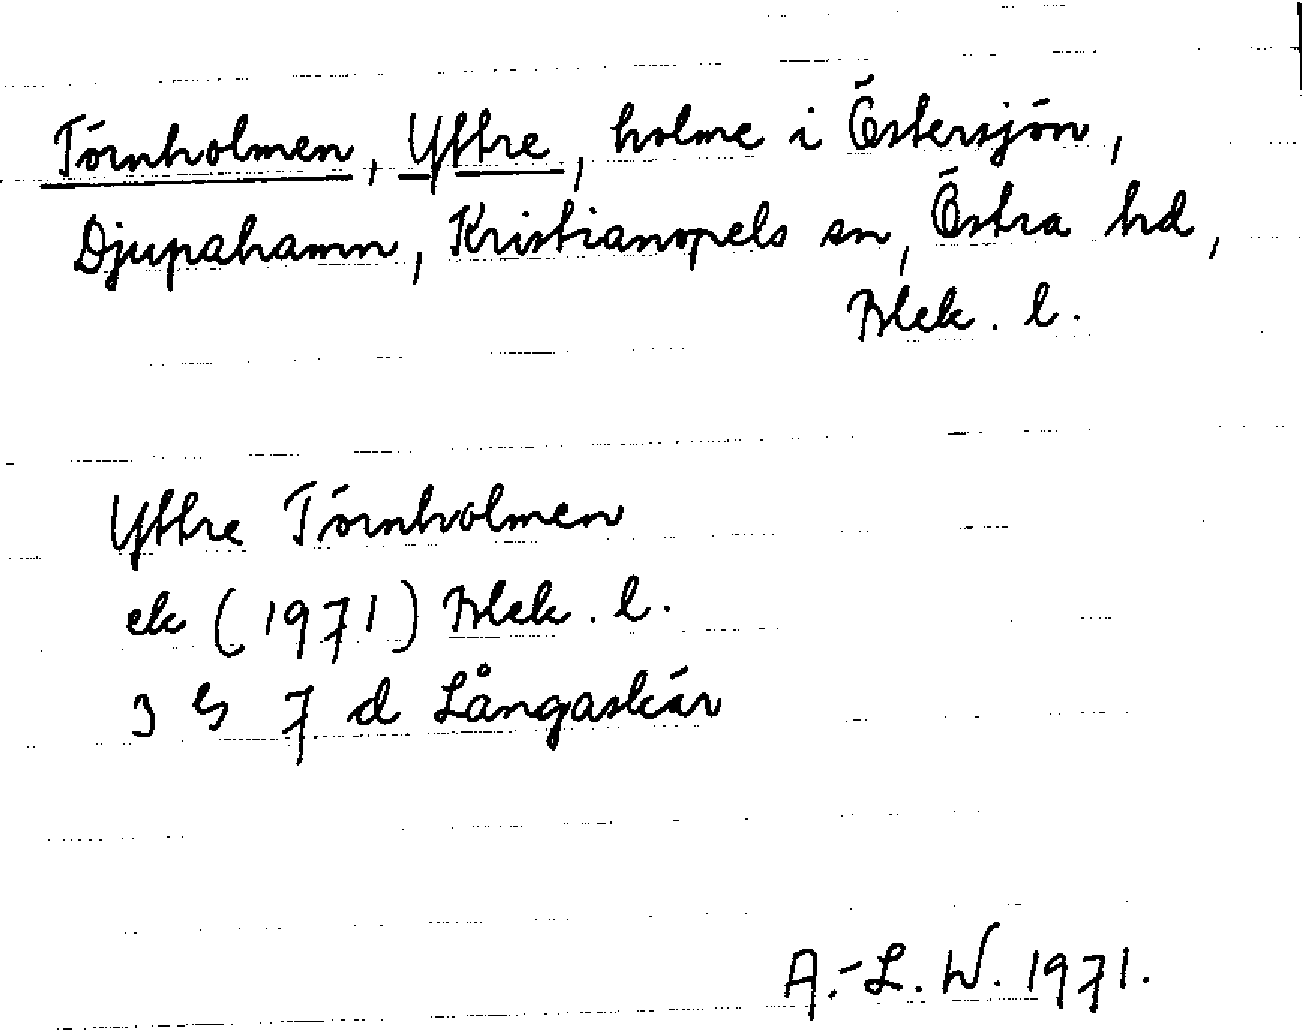 Törnholmen, Yttre, holme i Östersjön,
Djupahamn, Kristianopels sn, Östra hd,
Blek. l.
Yttre Törnholmen
ek (1971) Blek. l.
3 G 7 d Långaskär
A.-L. W. 1971.